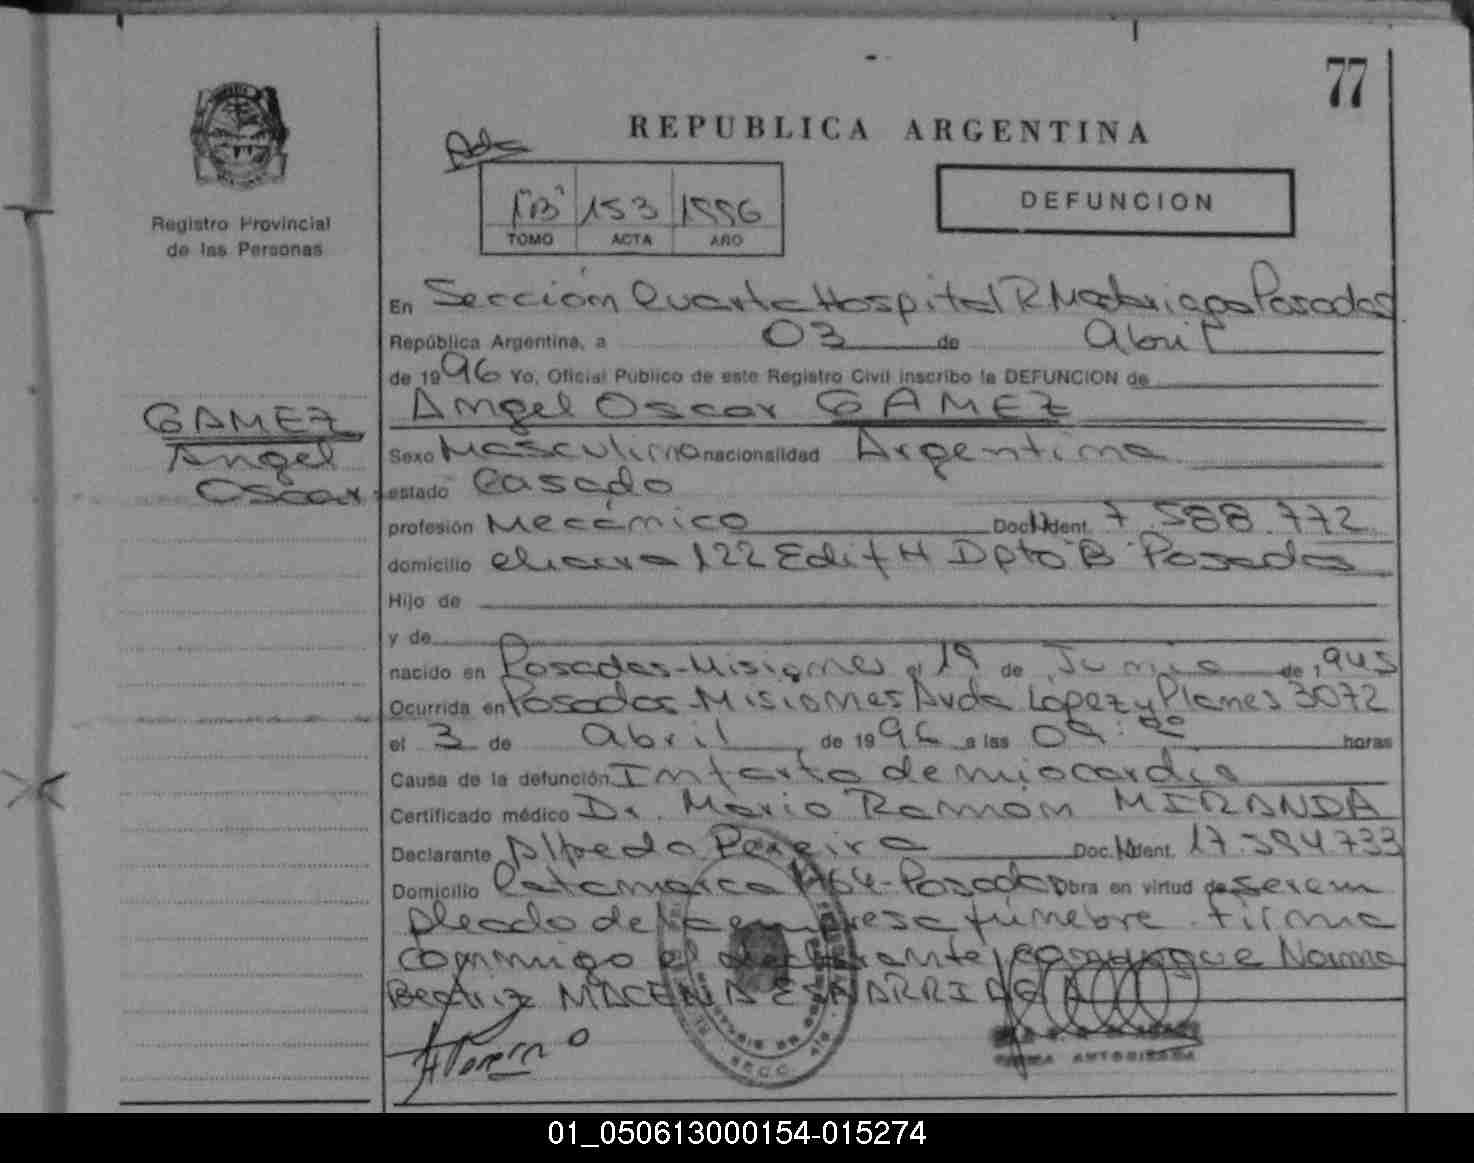 77
REPUBLICA ARGENTINA
"B" 153 1996
TOMO ACTA AÑO
DEFUNCION
Registro Provincial
de las Personas
GAMEZ
Angel
Oscar
En Sección Cuarta Hospital R Madariaga Posadas
República Argentina, a 03 de Abril
de 1996 Yo, Oficial Público de este Registro Civil inscribo la DEFUNCION de
Angel Oscar GAMEZ
Sexo Masculino nacionalidad Argentina
estado Casado
profesión Mecánico Doc. Ident. 7.588.772
domicilio chacra 122 Edif H Dpto "B" Posadas
Hijo de
y de
nacido en Posadas-Misiones el 19 de Junio de 1945
Ocurrida en Posadas-Misiones Avda López y Planes 3072
el 3 de abril de 1996 a las 09: horas
Causa de la defunción Infarto de miocardio
Certificado médico Dr. Mario Ramón MIRANDA
Declarante Alfredo Pereira Doc. Ident. 17.394.733
Domicilio Catamarca -Posadas Obra en virtud de ser em
pleado de la empresa fúnebre. Firma
conmigo el declarante, Norma
Beatriz
FIRMA AUTORIZADA
01_050613000154-015274